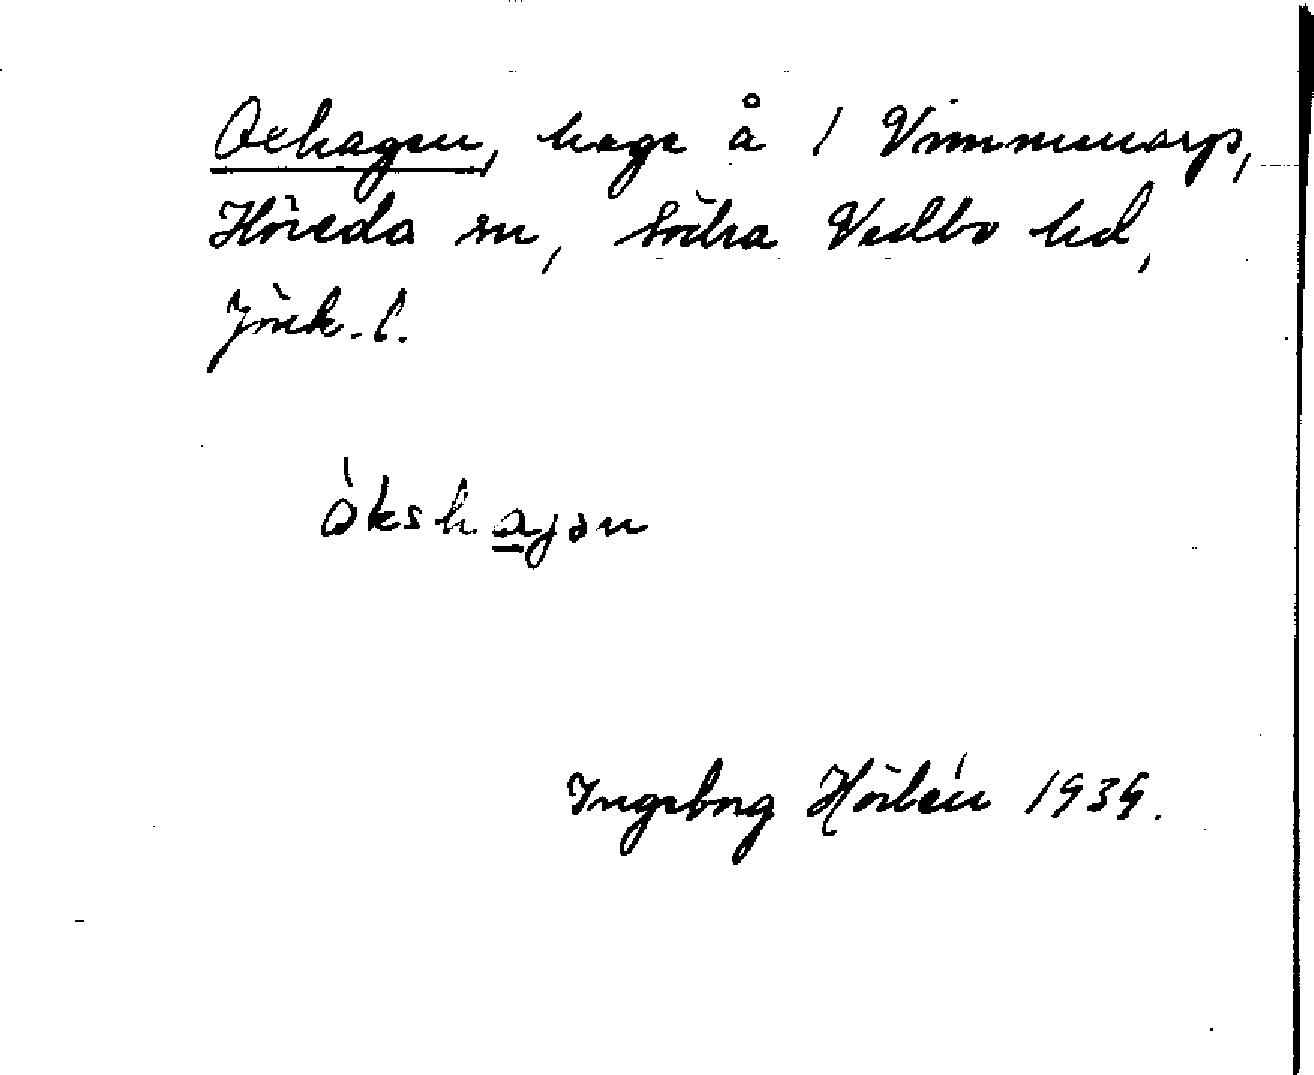 Oxhagen, hage å 1 Vimmenarp,
Höreda sn, Södra Vedbo hd,
Jönk. l.
òkshagən
Ingeborg Hörlén 1939.